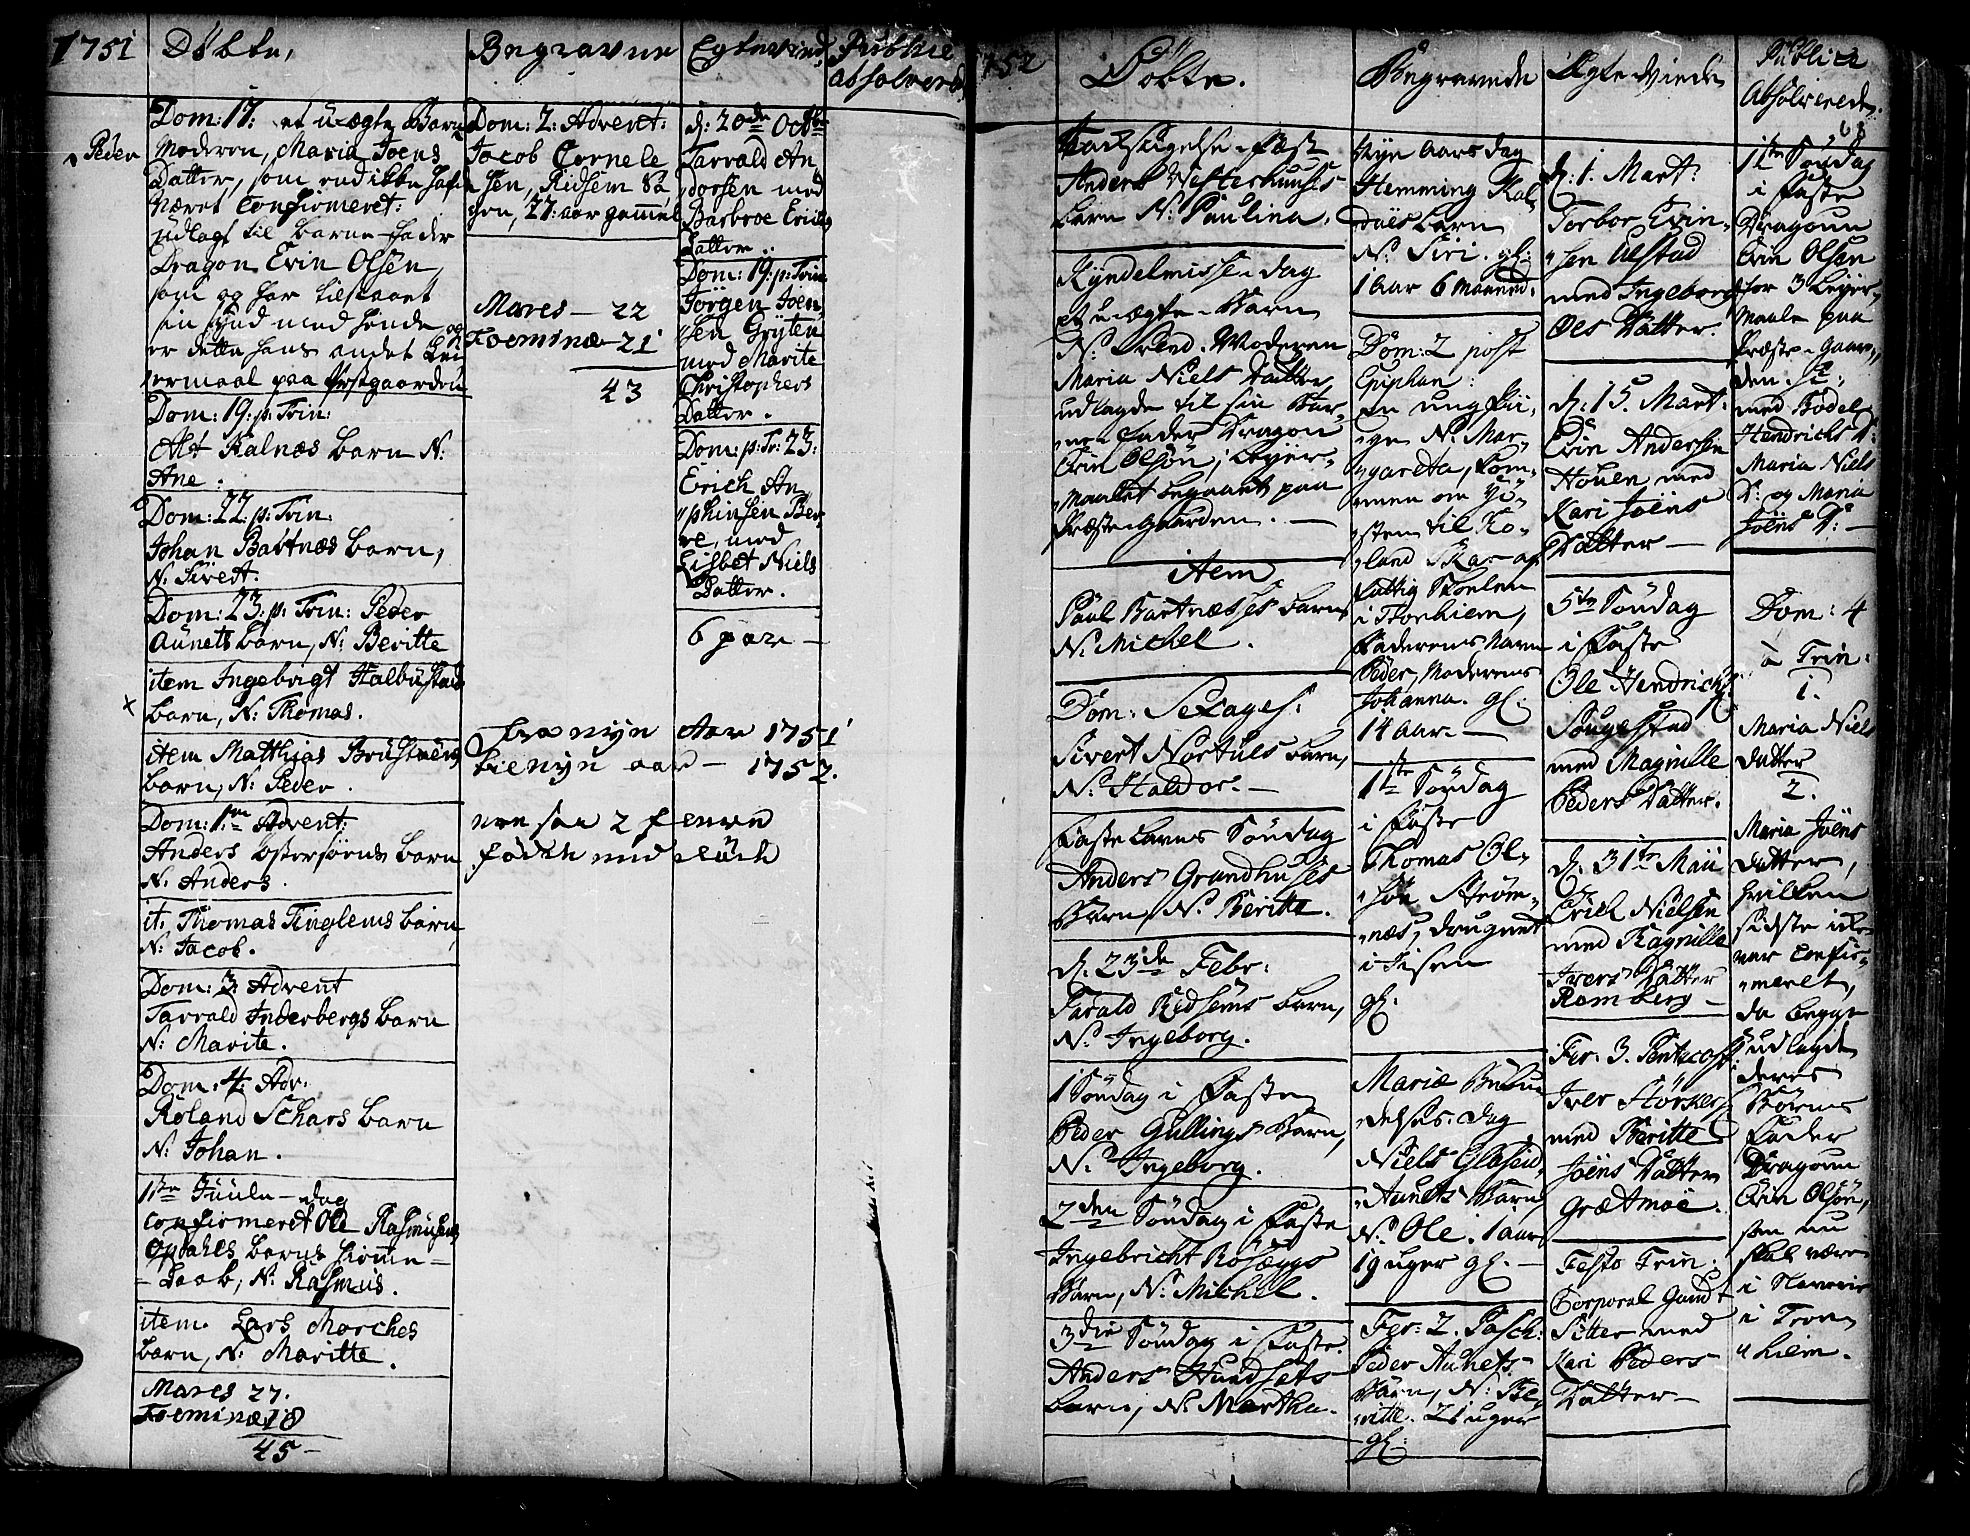 1751
Döbte,
Begravne
Egteviede
Publice
Absolverede
Peder
Dom: 17: et uægte Barn
Moderen, Maria Joens
Datter, som end ikke hafr
været Confirmeret:
udlagt til barne-fader
Dragon Erin Olsen,
som og har tilstaaet
sin synd med hende, og
er dette hans andet Lei
ermaal paa Præstgaarden
Dom: 19: p: Trin:
Alt Kalnæs barn N:
Ane.
Dom: 22: p: Trin:
Johan Bartnæs barn,
N: Sivert.
Dom: 23: p: Trin: Peder
Aunets barn, N: Beritte
item Ingebrigt Halbustads
barn, N: Thomas.
item Matthias Brustuens
barn, N: Peder.
Dom: 1me Advent:
Anders Østersørens barn
N: Anders.
it. Thomas Tinglems barn,
N: Jacob.
Dom: 3: Advent
Tarrald Inderbergs barn
N: Marite.
Dom: 4: Adv:
Roland Schars barn
N: Johan.
1ste Juule-dag
Confirmeret Ole Rasmusens
Opdahls barns hiemme-
-daab, N: Rasmus.
item. Lars Morches
barn, N: Maritte.
Mares 27.
Foeminæ 18
45-
Dom: 2: Advent:
Jacob Cornele
sen, Ridsem Va
gen, 27: aar gammel
Mares - 22
Foeminæ - 21
43
fra nyn Aar 1751
tie nyn aar - 1752.
ere saa 2 fleere
födde end döde
d: 20de Octbr
Tarrald An
dersen med
Barbroe Erichs
Datter.
Dom: 19: p: Trin
Jörgen Joen
sen Gryten
med Marite
Christophers
Datter.
Dom: p: Tr: 23:
Erich An
phinsen Ber
re, med
Lisbet Niels
Datter.
6 par -
1752
Döbte.
Begravede
Egte Viede
Publice
Absolverede.
68
Anders Vesterhuuses
barn N: Paulina.
Kyndelmisse-dag
et uægte-Barn
N: Svend. Moderen
Maria Niels Datter,
udlagde til sin Bar-
ne-fader Dragon
Erin Olsön, Leyer-
maalet begaaet paa
Præste-gaarden. -
item
Paul Bartnæsses barn,
N: Michel.
Dom: Sexages:
Sivert Nortuls barn,
N: Haldor. -
Faste Lavns Söndag
Anders Grandhuses
Barn, N: Beritte.
d. 23de Febr:
Tarald Ridsems barn,
N: Ingeborg.
1 Söndag i Fasten
Peder Gullings Barn,
N: Ingeborg.
2den Söndag i Faste
Ingebricht Rosæggs
Barn, N: Michel.
3die Söndag i Faste
Anders Hundsets
barn, N: Martha.
Nye Aars dag
Hemming Kal
barn
N: Siri. gl:
1 Aar 6 Maaned.
Dom: 2 post
Epiphan:
en ung Pii,
ge N: Mar-
gareta, kom-
men om Hö-
sten til Ro-
land Skar af
Fattig Skoelen
i Tronhiem,
Faderens Navn
Peder, Moderens
Johanna. gl:
14 Aar. -
1ste Söndag
i Faste
Thomas Ol-
sön Ström-
næs, Drugnet
i Isen
gl:
Mariæ Bebu
delses-Dag
Niels
Aunets Barn
N: Ole. 1 aar
19 uger gl. -
Fer: 2. Pasch:
Peder Aunets-
Barn, N: Be-
ritte. 21 uger
gl:
d: 1. Mart:
Torber Evin-
sen Ulstad
med Ingeborg
Oles Datter
d: 15. Mart:
Erin Andersen
Houen med
Kari Joens
Datter -
5te Söndag
i Faste
Ole Hendrichs:
Bugestad
med Magnille
Peders Datter.
d. 31te Maii
Erich Nielsen
med Ragnille
Ivers Datter
Romberg -
Fer: 3. Pentecost:
Iver Störker
med Beritte
Joens Datter
Grætmoe.
Festo Trin:
Corporal Gundt
Pitter med
Kari Peders
Datter -
1ste Söndag
i Faste
Dragoun
Erin Olsen
for 3 Leyer-
maale paa
Præste-Gaar,
den.
med Bodel
Hendrichs D:
Maria Niels
D: og Maria
Joens D: -
Dom: 4
a Trin:
1.
Maria Niels
Datter
2.
Maria Joens
Datter,
hvilken
sidste ike
var Confir-
meret,
da begge
udlagde
deres
Börns
Fader
Dragoun
Erin Olsön,
som nu
skal være
i
i Tron
hiem.